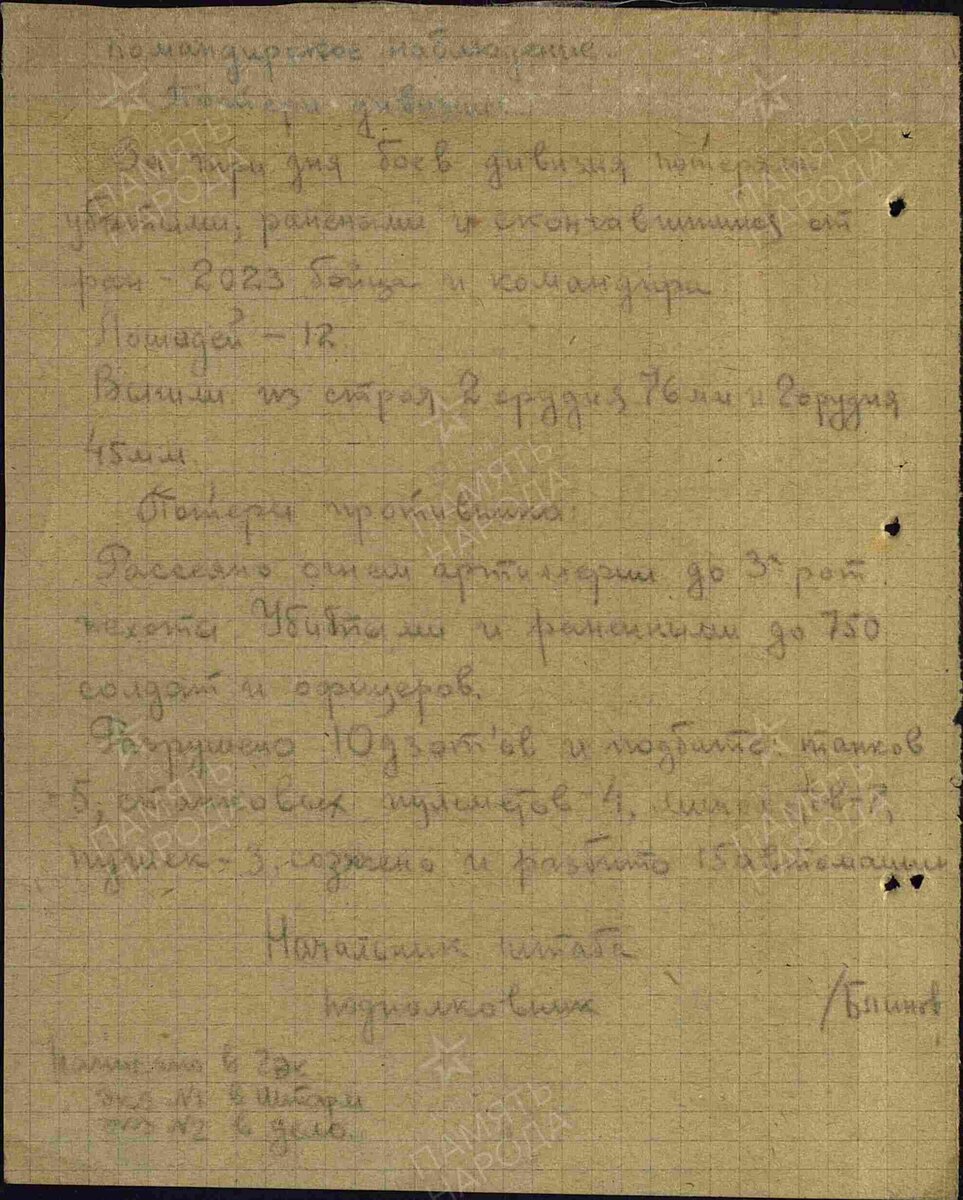 Командирское наблюдение.
Потери дивизии:
За три дня боев дивизия потеряла
убитыми, ранеными и скончавшимися от
ран - 2023 бойца и командира
Лошадей - 12.
Вышли из строя 2 орудия 76мм и 2 орудия
45мм
Потери противника:
Рассеяно огнем артиллерии до 3х рот
пехоты. Убитыми и ранеными до 750
солдат и офицеров.
Разрушено 10 дзот'ов и подбито: танков
-5, станковых пулеметов -4,
пушек - 3, сожжено и разбито 15 автомашин
Начальник штаба
подполковник /Блинов
Написано в 2 эк
экз №1 в Штарм
экз №2 в дело.
ПАМЯТЬ
НАРОДА
ПАМЯТЬ
НАРОДА
ПАМЯТЬ
НАРОДА
ПАМЯТЬ
НАРОДА
ПАМЯТЬ
НАРОДА
ПАМЯТЬ
НАРОДА